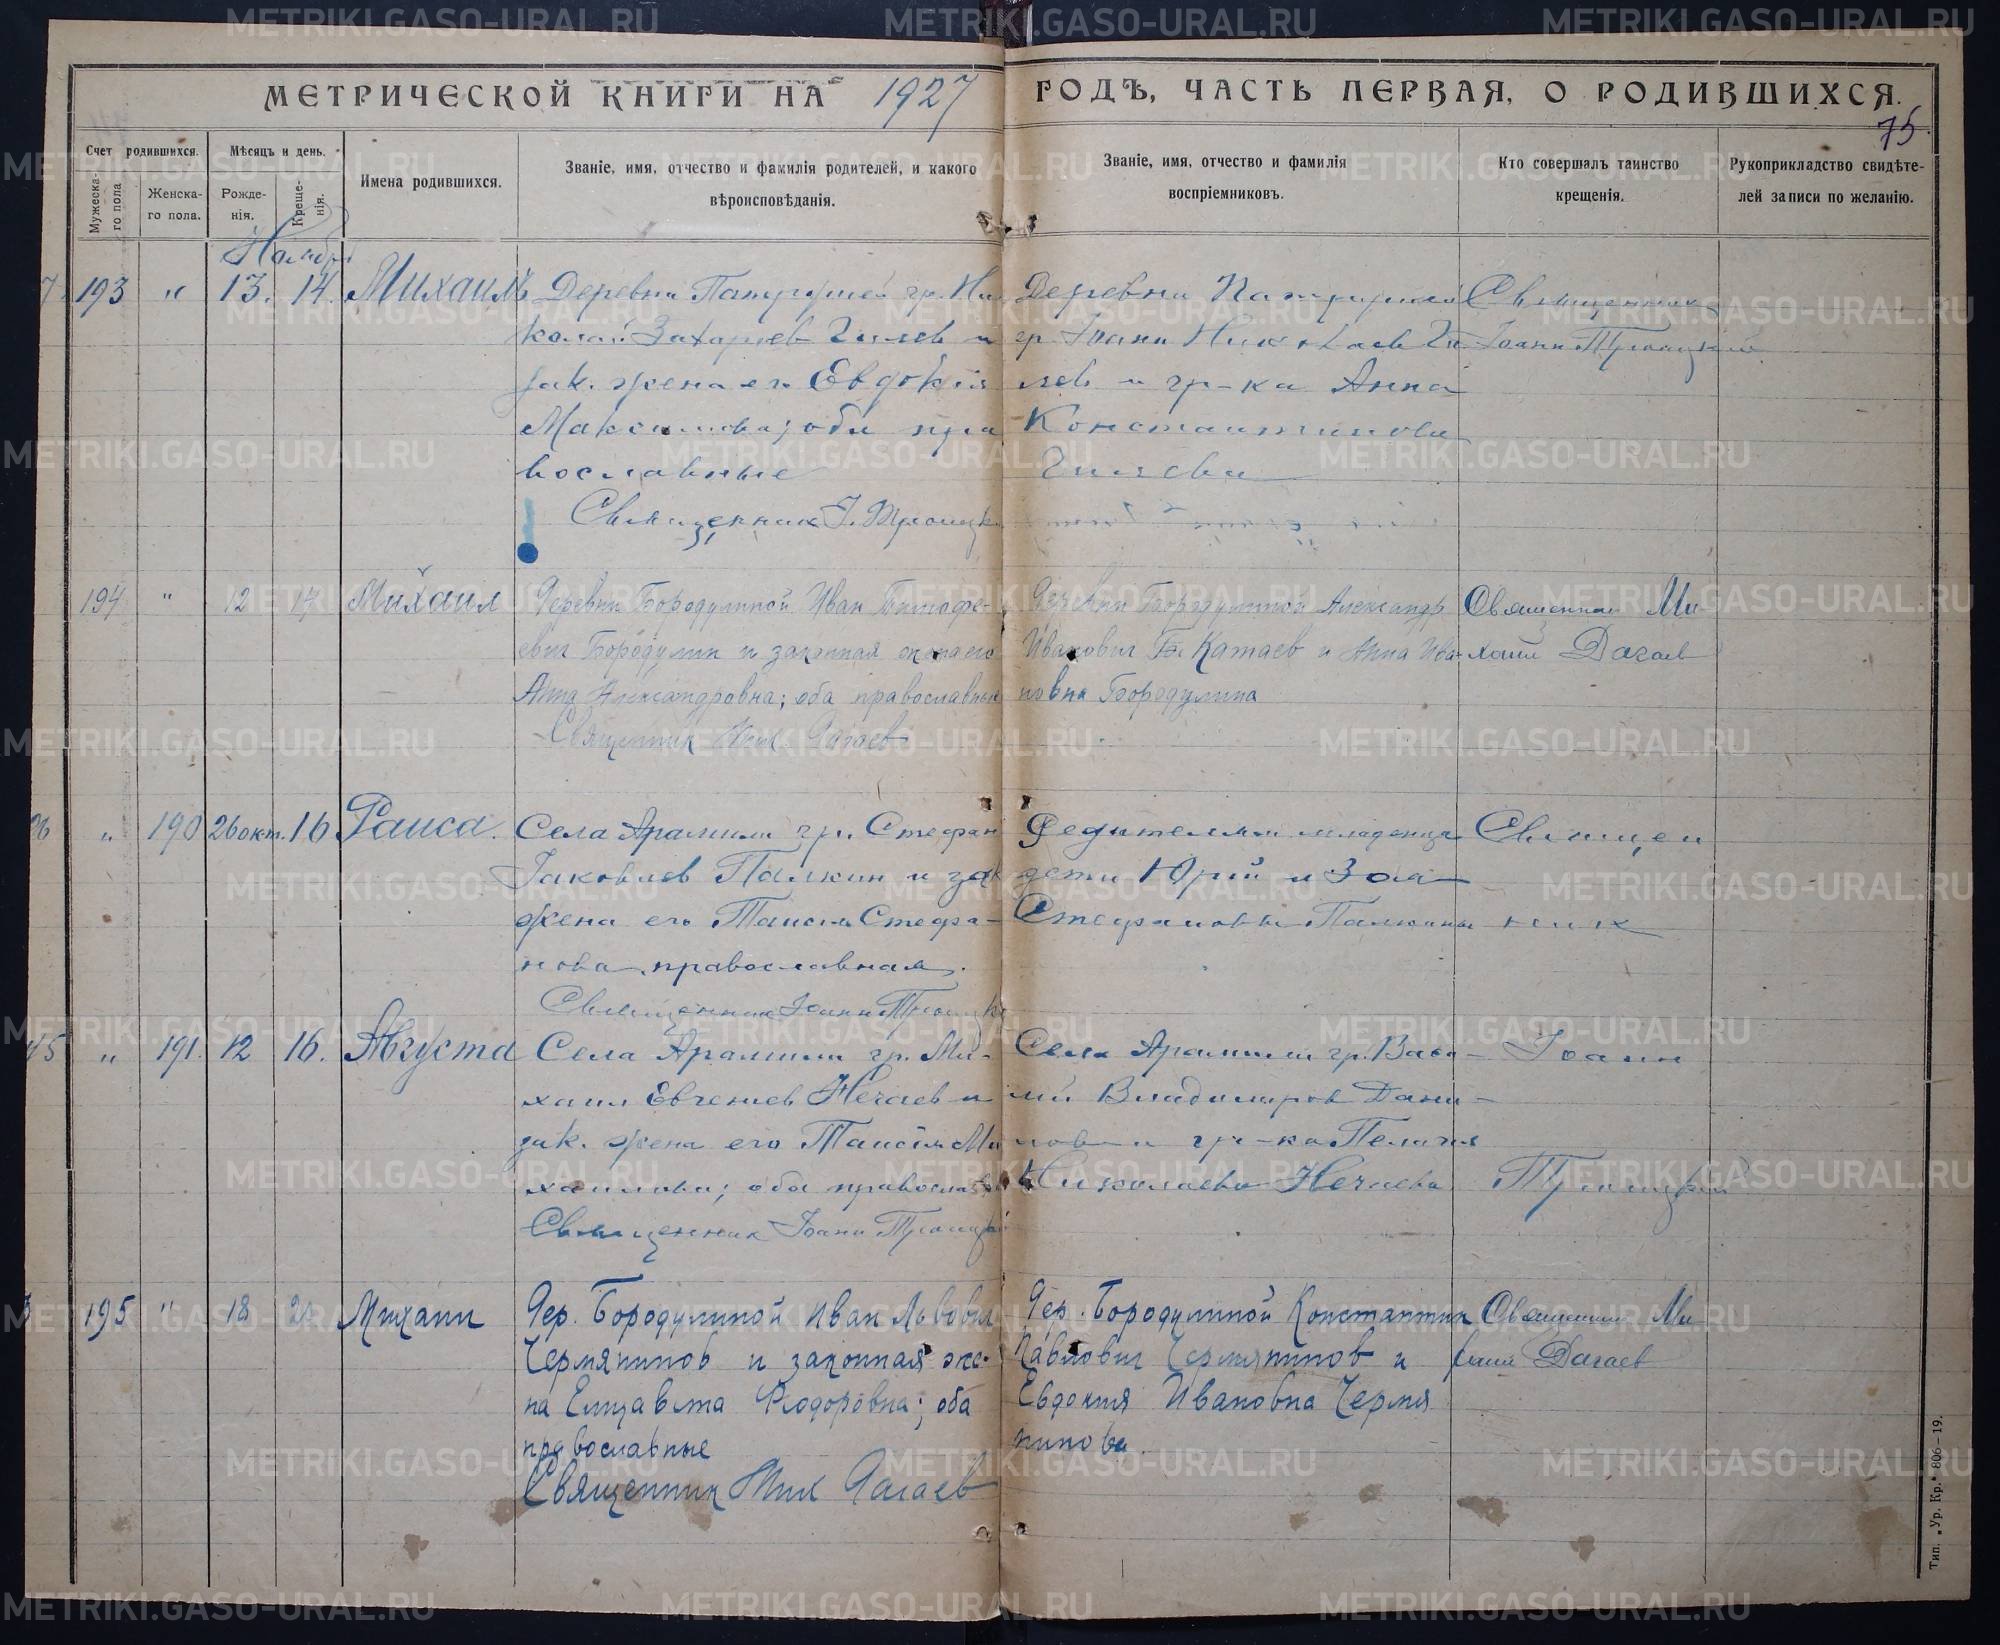 МЕТРИЧЕСКОЙ КНИГИ НА 1927 ГОДЪ, ЧАСТЬ ПЕРВАЯ, О РОДИВШИХСЯ.
75
Счет родившихся.
Мужеска-го пола
Женска-го пола.
Мѣсяцъ и день.
Рожде-нія.
Креще-нія.
Имена родившихся.
Званіе, имя, отчество и фамилія родителей, и какого
вѣроисповѣданія.
Званіе, имя, отчество и фамилія
воспріемниковъ.
Кто совершалъ таинство
крещенія.
Рукоприкладство свидѣте-
лей записи по желанію.
Ноябрь
193 " 13. 14. Михаилъ
Деревни гр. Ни
колай Захариев Гилев и
зак. жена его Евдокія
Максимова; оба пра
вославные
Священник І. Троицкій
Деревни
гр. Іоанн Николаев Ги
лев и гр-ка Анна
Константинова
Гилева
Священник
Іоанн Троицкій
194 " 12 14 Михаил
Деревни Бородулиной Иван Тимофе-
евич Бородулин и законная жена его
Анна Александровна; оба православные
Священник Мих. Дагаев
Деревни Бородулиной Александр
Иванович Катаев и Анна Ива-
новна Бородулина
Священник Ми
хаил Дагаев
" 190 26 окт. 16 Раиса.
Села Арамили гр. Стефан
Іаковлев Палкин и зак
жена его Таисія Стефа-
нова, православная.
Священник Іоанн Троицкій
Родители младенца
дети Юрій и Зоя
Стефановы Палкины
Священ
ник
" 191. 12 16. Августа
Села Арамили гр. Ми-
хаил Евгениев Нечаев и
зак. жена его Таисія Ми
хаилова; оба православные
Священник Іоанн Троицкій
Села Арамили гр. Васи-
лий Владимиров Дани-
лов и гр-ка Пелагия
Николаева Нечаева
Іоанн
Троицкій
195 " 18 Михаил
Дер. Бородулиной Иван Львович
Чермянинов и законная же-
на Елизавета Феодоровна; оба
православные
Священник Мих Дагаев
Дер. Бородулиной Константин
Павлович Чермянинов и
Евдокия Ивановна Чермя
нинова.
Священник Ми
хаил Дагаев
Тип. „Ур. Кр." 806—19.
METRIKI.GASO-URAL.RU